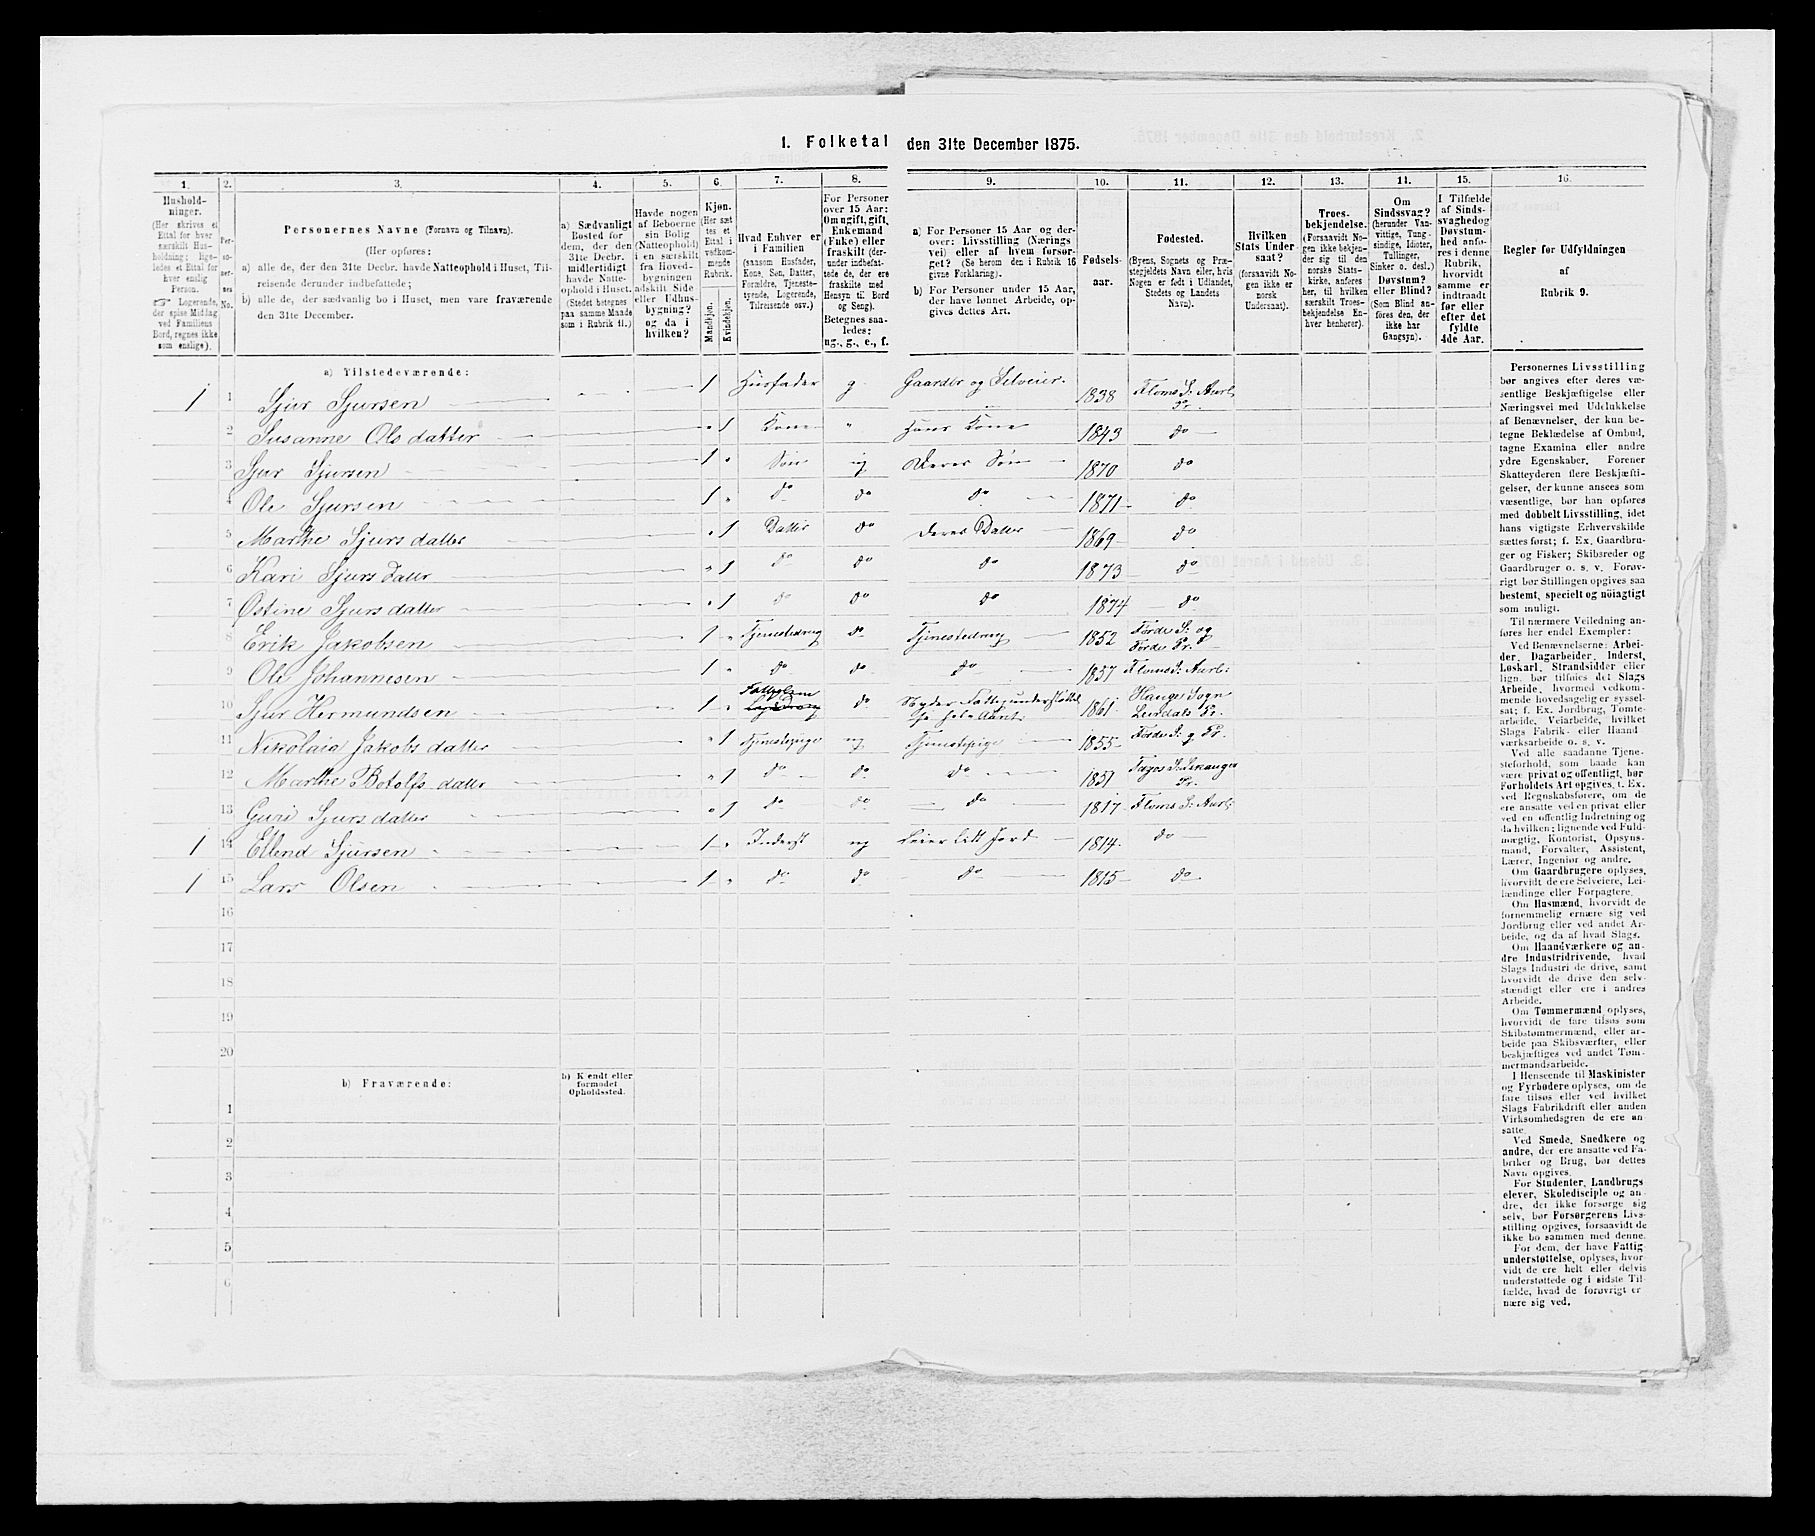 1. Folketal den 31te December 1875.
1. 2. 3. 4. 5. 6. 7. 8. 9. 10. 11. 12. 13. 14. 15. 16.
Husholdninger.
(Her skrives et
Ettal for hver
særskilt Husholdning;
ligeledes et Ettal for
hver enslig
Person.
☞ Logerende,
der spise Middag
ved Familiens
Bord, regnes ikke
som enslige).
Personernes No.
Personernes Navne (Fornavn og Tilnavn).
(Her opføres:
a) alle de, der den 31te Decbr. havde Natteophold i Huset, Tilreisende derunder indbefattede;
b) alle de, der sædvanlig bo i Huset, men vare fraværende
den 31te December.
a) Sædvanligt
Bosted for
dem, der den
31te Decbr.
midlertidigt
havde Natteophold
i Huset.
(Stedet betegnes
paa samme Maade
som i Rubrik 11.)
Havde nogen
af Beboerne
sin Bolig
(Natteophold)
i en særskilt
fra Hovedbygningen
adskilt Side
eller Udhusbygning?
og da i
hvilken?
Kjøn.
(Her sættes et
Ettal i
vedkommende
Rubrik.
Mandkjøn.
Kvindekjøn.
Hvad Enhver er
i Familien
(saasom Husfader,
Kone, Søn, Datter,
Forældre, Tjenestetyende, Logerende,
Tilreisende osv.)
For Personer
over 15 Aar:
Om ugift, gift,
Enkemand
(Enke) eller
fraskilt (derunder indbefattede de, der ere
fraskilte med
Hensyn til Bord
og Seng).
Betegnes saaledes:
ug., g., e., f.
a) For Personer 15 Aar og derover: Livsstilling (Næringsvei) eller af hvem forsørget? (Se herom den i Rubrik 16
givne Forklaring).
b) For Personer under 15 Aar,
der have lønnet Arbeide, opgives dettes Art.
Fødselsaar.
Fødested.
(Byens, Sognets og Præstegjeldets Navn eller, hvis
Nogen er født i Udlandet,
Stedets og Landets
Navn).
Hvilken
Stats Undersaat?
(forsaavidt Nogen ikke er
norsk
Undersaat).
Troesbekjendelse.
(Forsaavidt Nogen ikke bekjender sig til den
norske Statskirke, anføres
her, til hvilken
særskilt Troesbekjendelse Enhver henhører).
Om
Sindssvag?
(herunder Vanvittige, Tungsindige, Idioter,
Tullinger,
Sinker o. desl.)
Døvstum?
eller Blind?
(Som Blind anføres den, der
ikke har
Gangsyn).
I Tilfælde
af Sindssvaghed og
Døvstumhed anføres i denne
Rubrik,
hvorvidt
samme er
indtraadt
før eller
efter det
fyldte
4de Aar.
Regler før Udfyldningen
af
Rubrik 9.
a) Tilstedeværende:
1 1 Sjur Sjursen 1 Husfader g. Gaardbr og Selveier. 1838 Floms S: Aurl: Pr.
2 Susanne Olsdatter " 1 Kone " Hans Kone 1843 do
3 Sjur Sjursen 1 " Søn ug Deres Søn 1870 do
4 Ole Sjursen 1 " do do do 1871 do
5 Marthe Sjursdatter " 1 Datter do deres Datter 1869 do
6 Kari Sjursdatter " 1 do do do 1873 do
7 Østine Sjursdatter " 1 do do do 1874 do
8 Erik Jakobsen 1 " Tjenestedreng do Tjenestedreng 1852 Førde S: og Førde Pr.
9 Ole Johannesen 1 " do do do 1857 Floms S: Aurl:
10 Sjur Hermundsen 1 " do 1861 Hauge Sogn Leirdals Pr.
11 Nikolaia Jakobsdatter " 1 Tjenestepige ug Tjenestepige 1855 Førde S: g Pr.
12 Marthe Botolfsdatter " 1 do do do 1851 Pr.
13 Guri Sjursdatter " 1 do do do 1817 Floms S: Aurl:
1 14 Ellend Sjursen 1 " Inderst ug Leier lidt Jord 1814 do
1 15 Lars Olsen 1 " do do do 1815 do
16
17
18
19
20
b) Fraværende:
b) Kendt eller
formodet
Opholdssted.
1
2
3
4
5
6
Personernes Livsstilling
bør angives efter deres væsentlige Beskjæftigelse eller
Næringsvei med Udelukkelse
af Benævnelser, der kun betegne Beklædelse af Ombud,
tagne Examina eller andre
ydre Egenskaber. Forener
Skatteyderen flere Beskjæftigelser, der kunne ansees som
væsentlige, bør han opføres
med dobbelt Livsstilling, idet
hans vigtigste Erhvervskilde
sættes først; f. Ex. Gaardbruger og Fisker; Skibsreder og
Gaardbruger o. s. v. Forøvrigt bør Stillingen opgives saa
bestemt, specielt og nöiagtigt
som muligt.
Til nærmere Veiledning anføres her endel Exempler:
Ved Benævnelserne: Arbeider, Dagarbeider, Inderst,
Løskarl, Strandsidder eller
lign. bør tilføies det Slags
Arbeide, hvormed vedkommende hovedsagelig er sysselsat; f. Ex. Jordbrug, Tomtearbeide, Veiarbeide, hvilket
Slags Fabrik- eller Haandværksarbeide o. s. v.
Ved alle saadanne Tjenesteforhold, som baade kan
være privat og offentligt, bør
Forholdets Art opgives, t. Ex.
ved Regnskabsførere, om de
ere ansatte ved en privat eller
ved en offentlig Indretning og
da hvilken; lignende ved Fuldmægtig, Kontorist, Opsynsmand, Forvalter, Assistent,
Lærer, Ingeniør og andre.
Om Gaardbrugere oplyses,
hvorvidt de ere Selveiere, Leilændinge eller Forpagtere.
Om Husmænd, hvorvidt de
fornemmelig ernære sig ved
Jordbrug eller ved andet Arbeide, og da af hvad Slags.
Om Haandværkere og andre Industridrivende, hvad
Slags Industri de drive, samt
hvorvidt de drive den selvstændigt eller ere i andres
Arbeide.
Om Tømmermænd oplyses,
hvorvidt de fare tilsøs som
Skibstømmermænd, eller arbeide paa Skibsværfter, eller
beskjæftiges ved andet Tømmermandsarbeide.
I Henseende til Maskinister
og Fyrbødere oplyses, om de
fare tilsøs eller ved hvilket
Slags Fabrikdrift eller anden
Virksomhedsgren de ere ansatte.
Ved Smede, Snedkere og
andre, der ere ansatte ved Fabriker og Brug, bør dettes
Navn opgives.
For Studenter, Landbrugselever, Skoledisciple og andre, der ikke forsørge sig
selv, bør Forsørgerens Livsstilling opgives, forsaavidt de
ikke bo sammen med denne.
For dem, der have Fattigunderstøttelse, oplyses, hvorvidt de ere helt eller delvis
understøttede og i sidste Tilfælde, hvad de forøvrigt ernære sig ved.